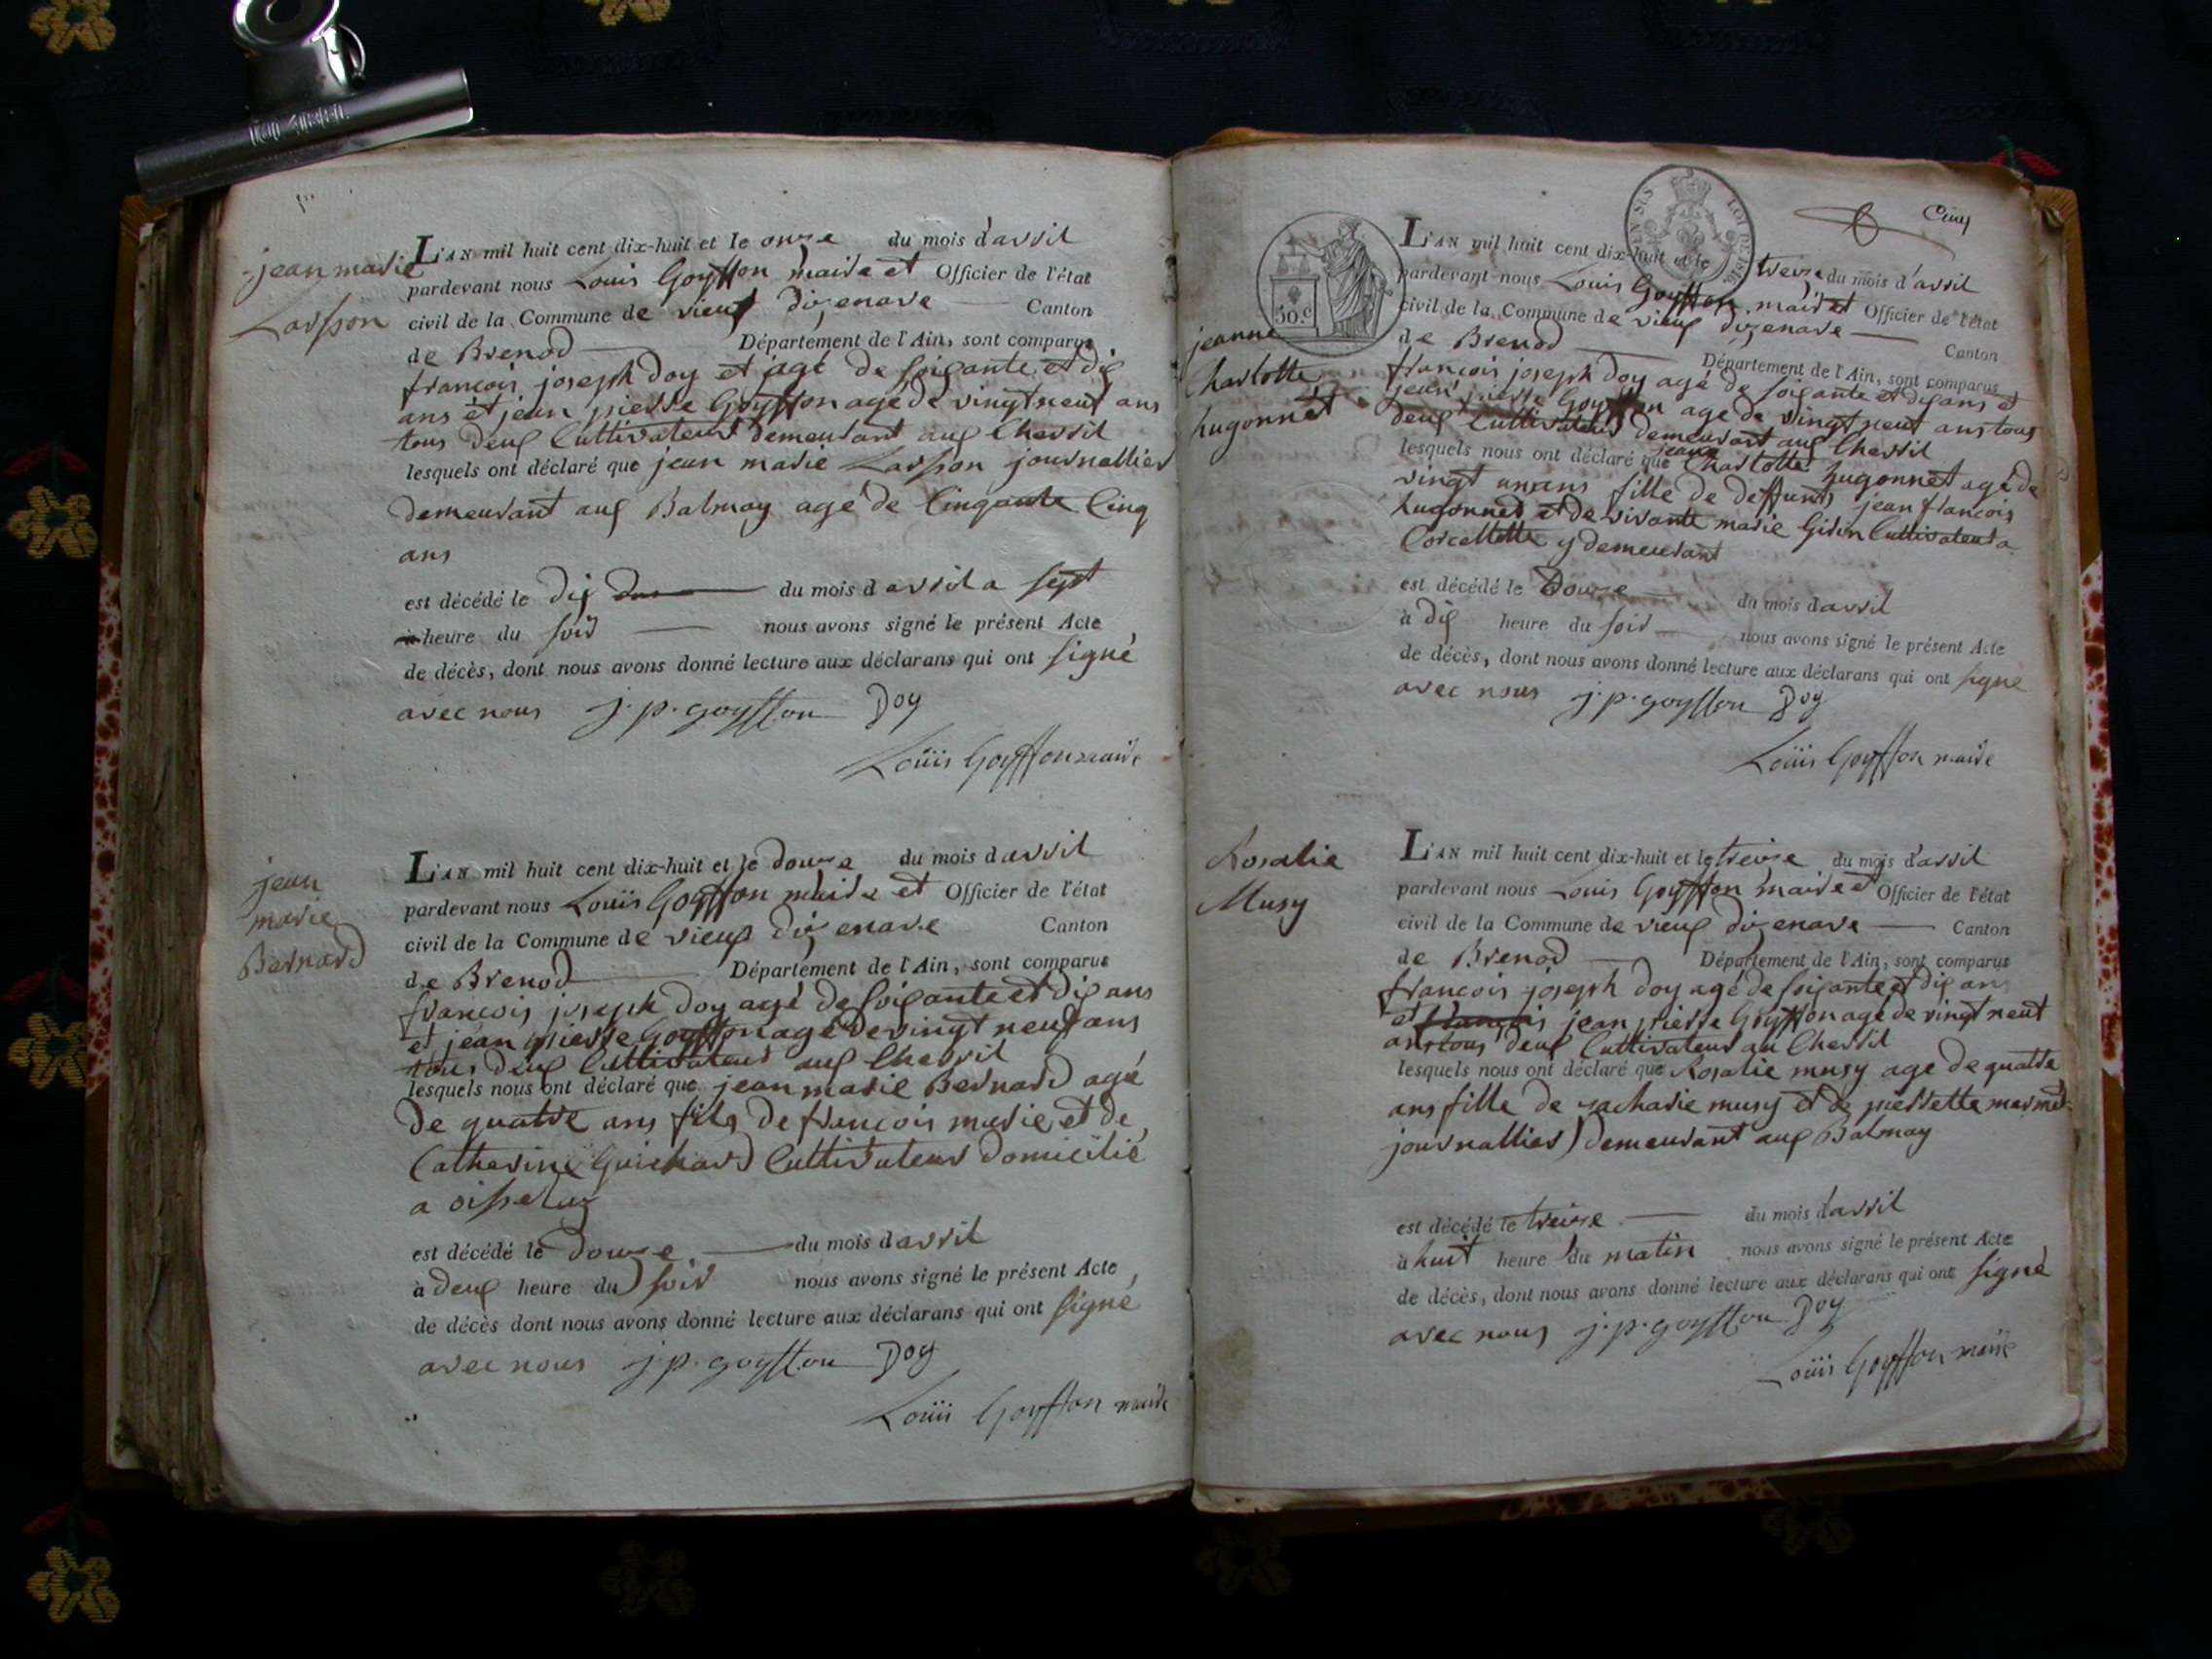 jean marie
Larsson
L'AN mil huit cent dix-huit et le onze du mois d'avril
pardevant nous Louis Goyffon maire et Officier de l'état
civil de la Commune de vieux dizenave Canton
de Brenod Département de l'Ain, sont comparus
francois joseph Doy et agé de soixante et dix
ans et jean pierre Goyffon agé de vingt neuf ans
tous deux Cultivateurs demeurant aux Chevril
lesquels ont déclaré que jean marie Larsson journallier
demeurant aux Balmay agé de Cinqante Cinq
ans
est décédé le dix du mois d avril a sept
heure du soir nous avons signé le présent Acte
de décès, dont nous avons donné lecture aux déclarans qui ont signé
avec nous j. p. goyffon Doy
Louis Goyffon maire
jean
marie
Bernard
L'AN mil huit cent dix-huit et le douze du mois d avril
pardevant nous Louis Goyffon maire et Officier de l'état
civil de la Commune de vieux dizenave Canton
de Brenod Département de l'Ain, sont comparus
francois joseph Doy agé de soixante et dix ans
et jean pierre Goyffon agé de vingt neuf ans
tous deux Cultivateurs aux Chevril
lesquels nous ont déclaré que jean marie Bernard agé
de quatre ans fils de francois marie et de
Catherine Guichard Cultivateur domicilié
a oisselaz
est décédé le douze du mois d avril
à deux heure du soir nous avons signé le présent Acte
de décès dont nous avons donné lecture aux déclarans qui ont signé
avec nous j. p. goyffon Doy
Louis Goyffon maire
Cinq
TIMBRE
LOI DE 1816
50.c
jeanne
Charlotte
hugonnet
L'AN mil huit cent dix-huit et le treize du mois d'avril
pardevant nous Louis Goyffon maire et Officier de l'état
civil de la Commune de vieux dizenave Canton
de Brenod Département de l'Ain, sont comparus
francois joseph Doy agé de soixante et dix ans et
jean pierre Goyffon agé de vingt neuf ans tous
deux Cultivateurs demeurant aux Chevril
jeanne
lesquels nous ont déclaré que Charlotte hugonnet agé de
vingt un ans fille de deffunts jean francois
hugonnet et de vivante marie Cultivateur a
Corcellette y demeurant
est décédé le Douze du mois d avril
à dix heure du soir nous avons signé le présent Acte
de décès, dont nous avons donné lecture aux déclarans qui ont signé
avec nous j. p. goyffon Doy
Louis Goyffon maire
Rosalie
Musy
L'AN mil huit cent dix-huit et le treize du mois d'avril
pardevant nous Louis Goyffon maire et Officier de l'état
civil de la Commune de vieux dizenave Canton
de Brenod Département de l'Ain, sont comparus
francois joseph Doy agé de soixante et dix ans
et francois jean pierre Goyffon agé de vingt neuf
ans tous deux Cultivateur au Chevril
lesquels nous ont déclaré que Rosalie musy agé de quatre
ans fille de zacharie musy et de pierrette mermet
journallier demeurant aux Balmay
est décédé le treize du mois d'avril
à huit heure du matin nous avons signé le présent Acte
de décès, dont nous avons donné lecture aux déclarans qui ont signé
avec nous j. p. goyffon Doy
Louis Goyffon maire